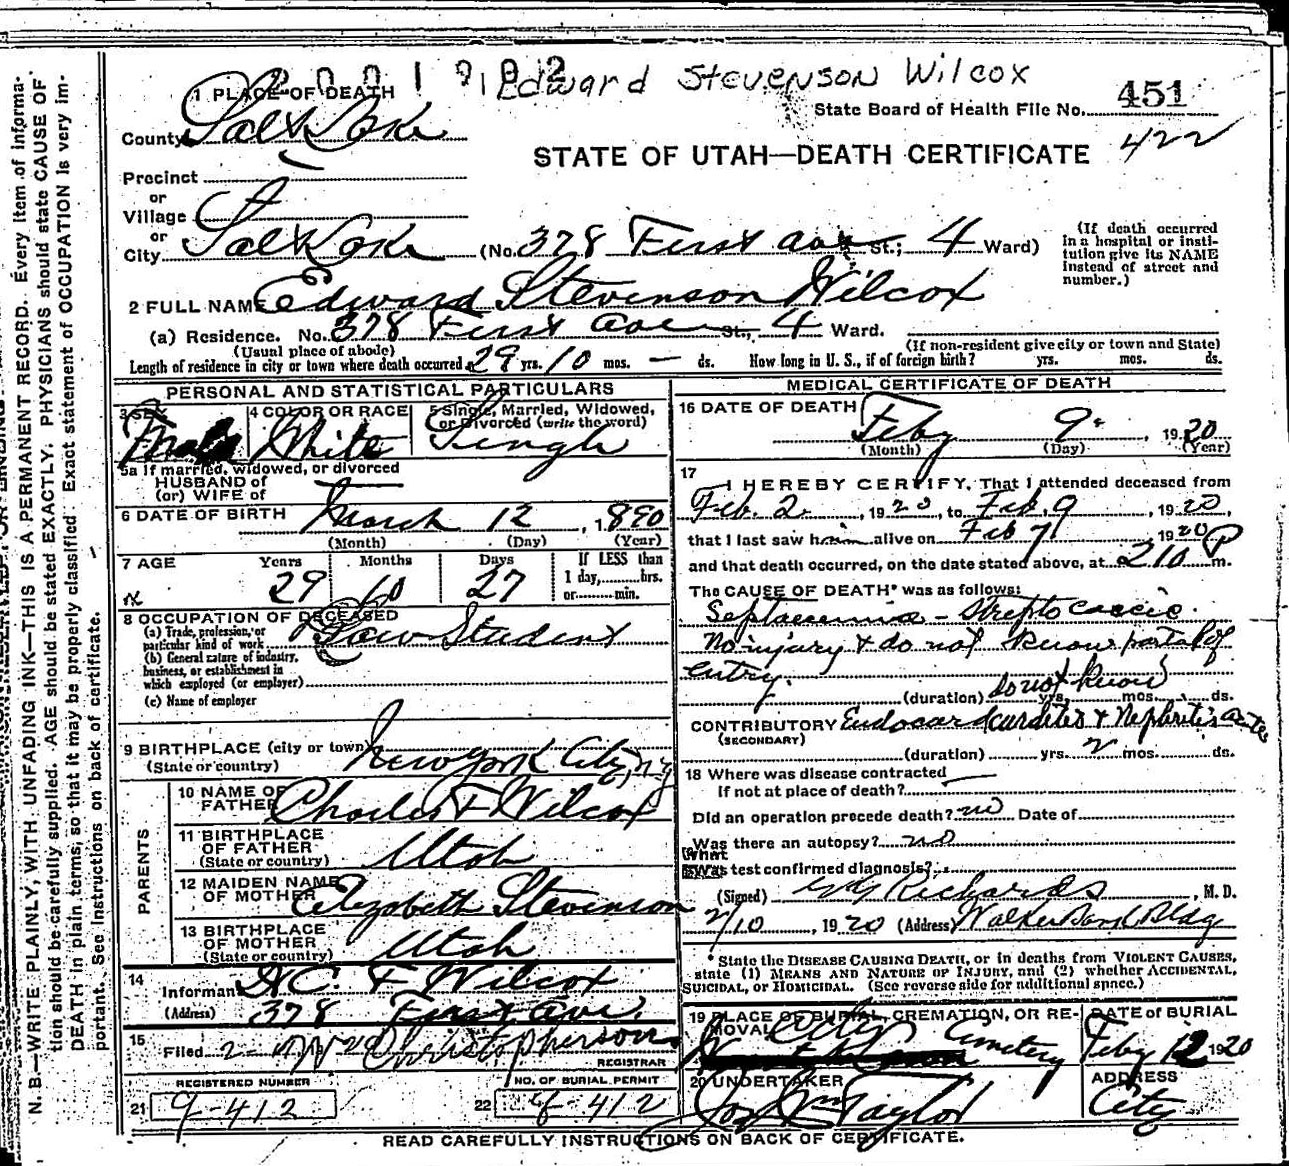 Edward Stevenson Wilcox
1 PLACE OF DEATH
State Board of Health File No. 451
County Salt Lake
422
STATE OF UTAH—DEATH CERTIFICATE
Precinct
or
Village
or
City Salt Lake (No. 378 First ave St.; 4 Ward)
(If death occurred in a hospital or institution give its NAME instead of street and number.)
2 FULL NAME Edward Stevenson Wilcox
(a) Residence. No. 378 First Ave St., 4 Ward.
(Usual place of abode)
(If non-resident give city or town and State)
Length of residence in city or town where death occurred 29 yrs. 10 mos. — ds. How long in U. S., if of foreign birth? yrs. mos. ds.
PERSONAL AND STATISTICAL PARTICULARS
3 SEX
Male
4 COLOR OR RACE
White
5 Single, Married, Widowed, or Divorced (write the word)
Single
5a If married, widowed, or divorced
HUSBAND of
(or) WIFE of
6 DATE OF BIRTH March 12, 1890
(Month) (Day) (Year)
7 AGE Years Months Days If LESS than
1 day, hrs.
or min.
29 10 27
8 OCCUPATION OF DECEASED
(a) Trade, profession, or particular kind of work Law Student
(b) General nature of industry, business, or establishment in which employed (or employer)
(c) Name of employer
9 BIRTHPLACE (city or town) New York City, N.Y.
(State or country)
PARENTS
10 NAME OF FATHER Charles F Wilcox
11 BIRTHPLACE OF FATHER Utah
(State or country)
12 MAIDEN NAME OF MOTHER Elizabeth Stevenson
13 BIRTHPLACE OF MOTHER Utah
(State or country)
14
Informant C. F Wilcox
(Address) 378 First Ave.
15
Filed Christopherson
REGISTRAR
REGISTERED NUMBER
21 9-412
NO. OF BURIAL PERMIT
22 8-412
MEDICAL CERTIFICATE OF DEATH
16 DATE OF DEATH
Feby 9, 1920
(Month) (Day) (Year)
17
I HEREBY CERTIFY, That I attended deceased from
Feb. 2, 1920, to Feb. 9, 1920,
that I last saw him alive on Feb 7 1920
and that death occurred, on the date stated above, at 210 P m.
The CAUSE OF DEATH* was as follows:
Septacemia - Streptococcic.
No injury & do not know portal of
entry.
(duration) do not know yrs. mos. ds.
CONTRIBUTORY Endocarditis & Nephritis acute
(SECONDARY)
(duration) yrs. 2 mos. ds.
18 Where was disease contracted
If not at place of death?
Did an operation precede death? no Date of
Was there an autopsy? no
What
test confirmed diagnosis?
(Signed) Richards, M. D.
2/10, 1920 (Address) Walker Bank Bldg
* State the DISEASE CAUSING DEATH, or in deaths from VIOLENT CAUSES,
state (1) MEANS AND NATURE OF INJURY, and (2) whether ACCIDENTAL,
SUICIDAL, or HOMICIDAL. (See reverse side for additional space.)
19 PLACE OF BURIAL, CREMATION, OR REMOVAL
City Cemetery
DATE of BURIAL
Feby 12 1920
20 UNDERTAKER
Jos Wm Taylor
ADDRESS
City
READ CAREFULLY INSTRUCTIONS ON BACK OF CERTIFICATE.
N. B.—WRITE PLAINLY, WITH UNFADING INK—THIS IS A PERMANENT RECORD. Every item of information should be carefully supplied. AGE should be stated EXACTLY. PHYSICIANS should state CAUSE OF DEATH in plain terms, so that it may be properly classified. Exact statement of OCCUPATION is very important. See Instructions on back of certificate.